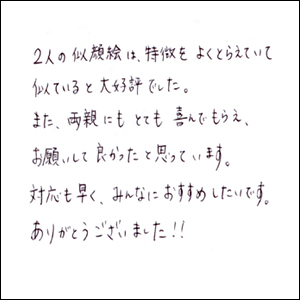 2人の似顔絵は、特徴をよくとらえていて
似ていると大好評でした。
また、両親にもとても喜んでもらえ、
お願いして良かったと思っています。
対応も早く、みんなにおすすめしたいです。
ありがとうございました!!